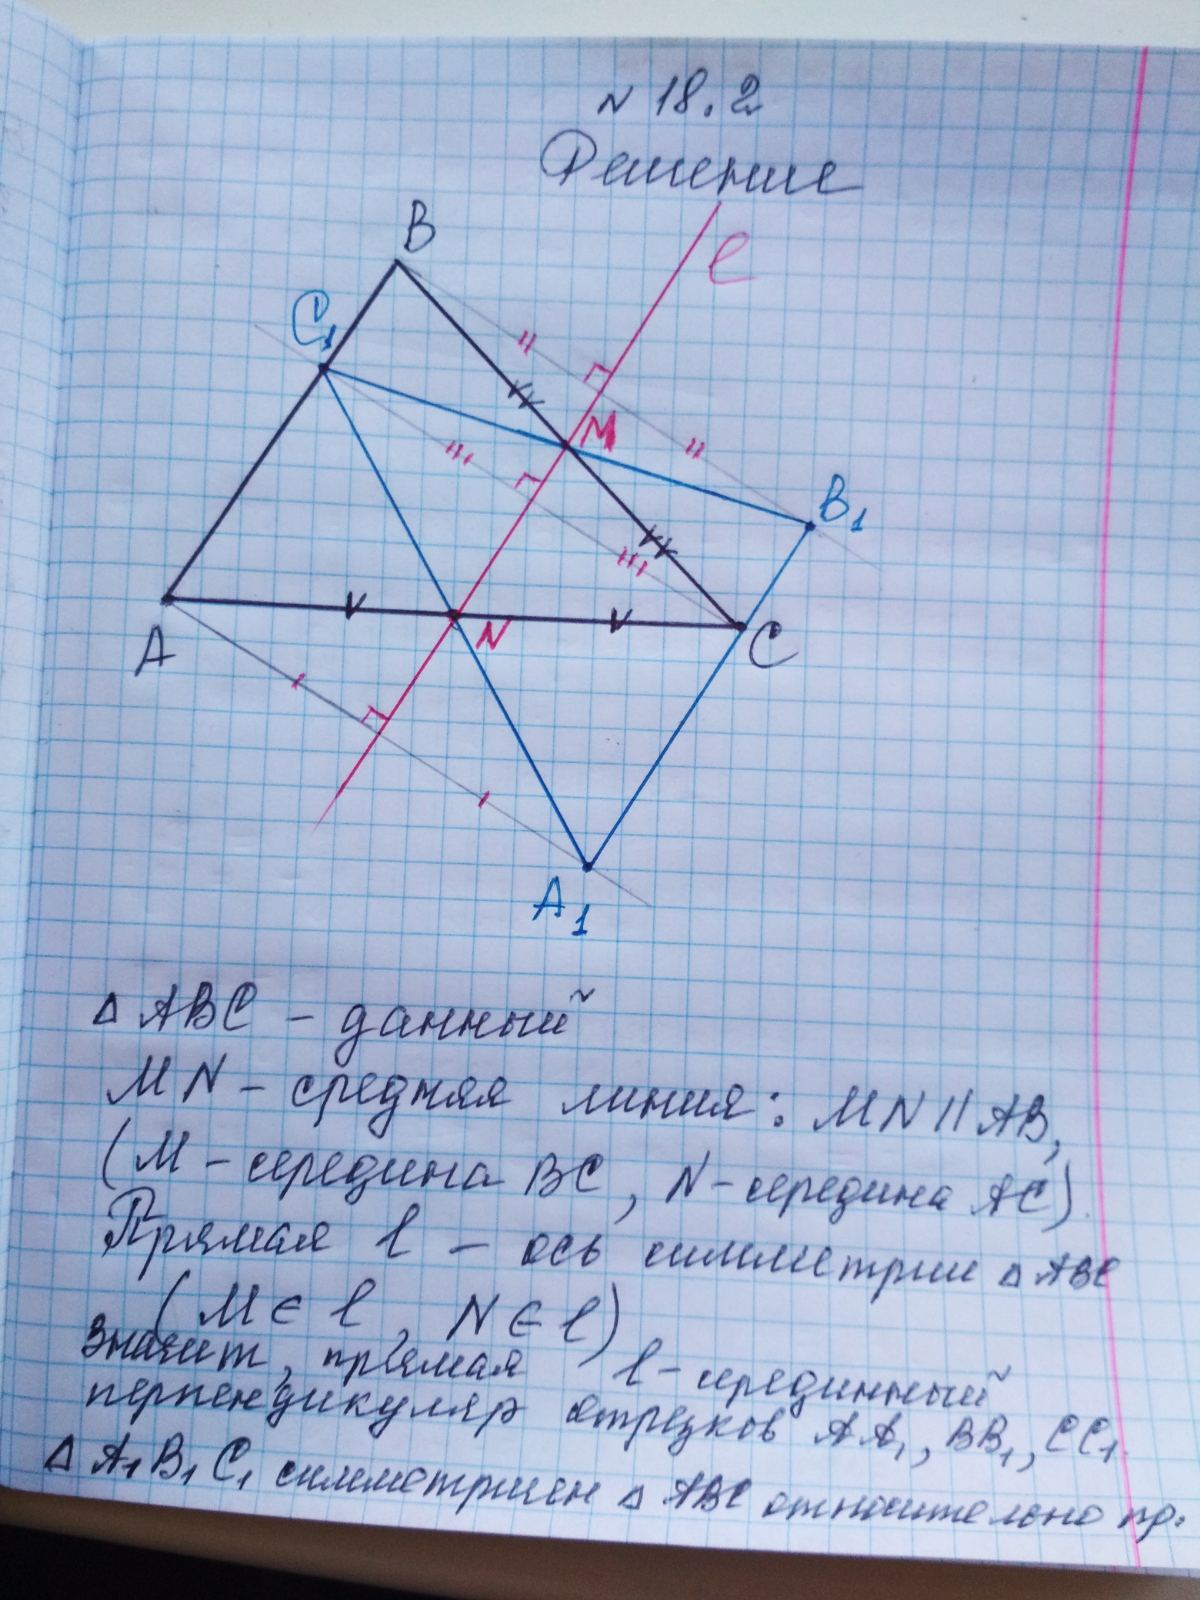 N 18.2
Решение
B
l
C₁
M
B₁
A
N
C
A₁
△ ABC – данный
MN – средняя линия: MN || AB,
(M – середина BC, N – середина AC).
Прямая l – ось симметрии △ ABC
(M ∈ l, N ∈ l)
Значит, прямая l – серединный
перпендикуляр отрезков AA₁, BB₁, CC₁.
△ A₁B₁C₁ симметричен △ ABC относительно пр.